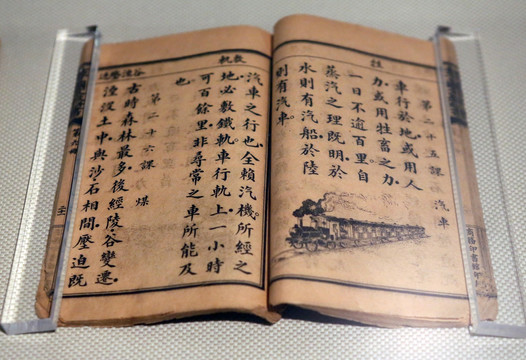 牲
第二十五課 汽車
車行於地。或用人
力。或用牲畜之力。
一日不逾百里。自
蒸汽之理既明。於
水則有汽船。於陸
則有汽車。
商務印書館
敷軌
谷湮壓迫
汽車之行也。全賴汽機。所經之
地。必敷鐵軌。車行軌上。一小時
可百餘里。非尋常之車所能及
也。
第二十六課 煤
古時森林最多。後經陵谷變遷。
湮沒土中。與沙石相間。壓迫既